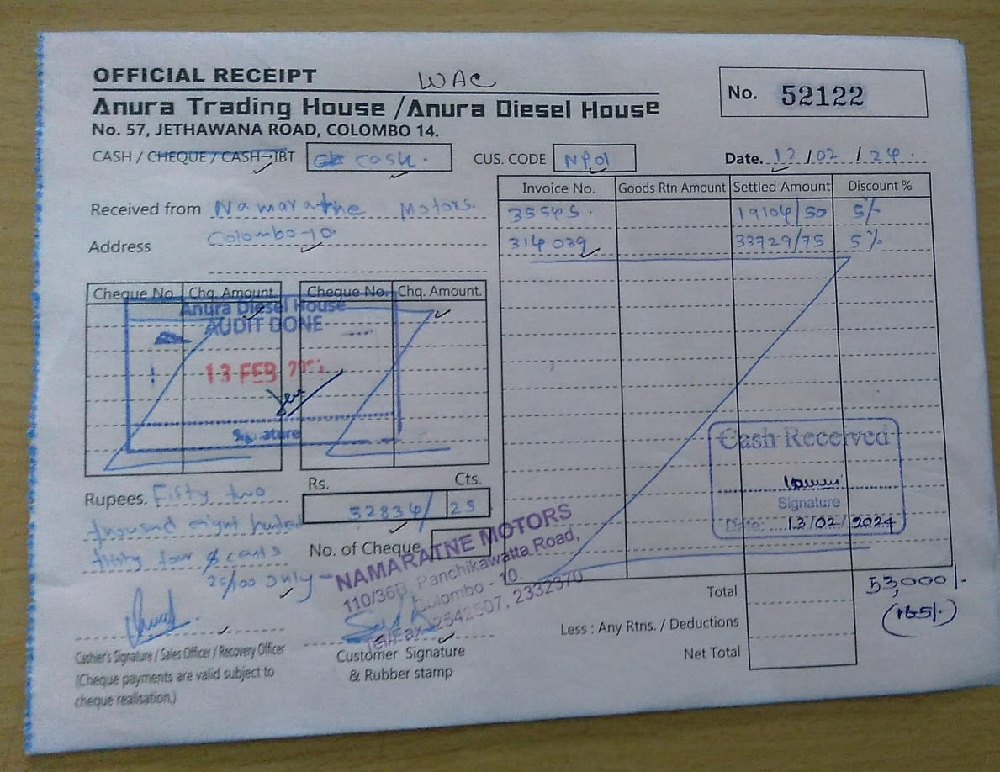 OFFICIAL RECEIPT
WAC
Anura Trading House /Anura Diesel House
No. 57, JETHAWANA ROAD, COLOMBO 14.
No. 52122
CASH / CHEQUE / CASH-IBT cash.
CUS. CODE NP01
Date. 12/02/24.
Received from Namarathe Motors.
Address Colombo-10.
Invoice No. Goods Rtn Amount Settled Amount Discount %
35545. 19104/50 5/-
314039 33729/75 5%
Cheque No. Chq. Amount Cheque No. Chq. Amount.
Anura Diesel House
AUDIT DONE
13 FEB
Signature
Cash Received
Signature
Date: 12/02/2024
Rupees. Fifty two
thousand eight hundred
thirty four & cents
25/00 only
Rs. Cts.
52834/ 25
No. of Cheque
NAMARATNE MOTORS
110/36B, Panchikawatta Road,
Colombo - 10
Tel/Fax: 2542507, 2332370
Total 53,000/-
(165/-)
Less : Any Rtns. / Deductions
Net Total
Cashier's Signature / Sales Officer / Recovery Officer
(Cheque payments are valid subject to
cheque realisation.)
Customer Signature
& Rubber stamp